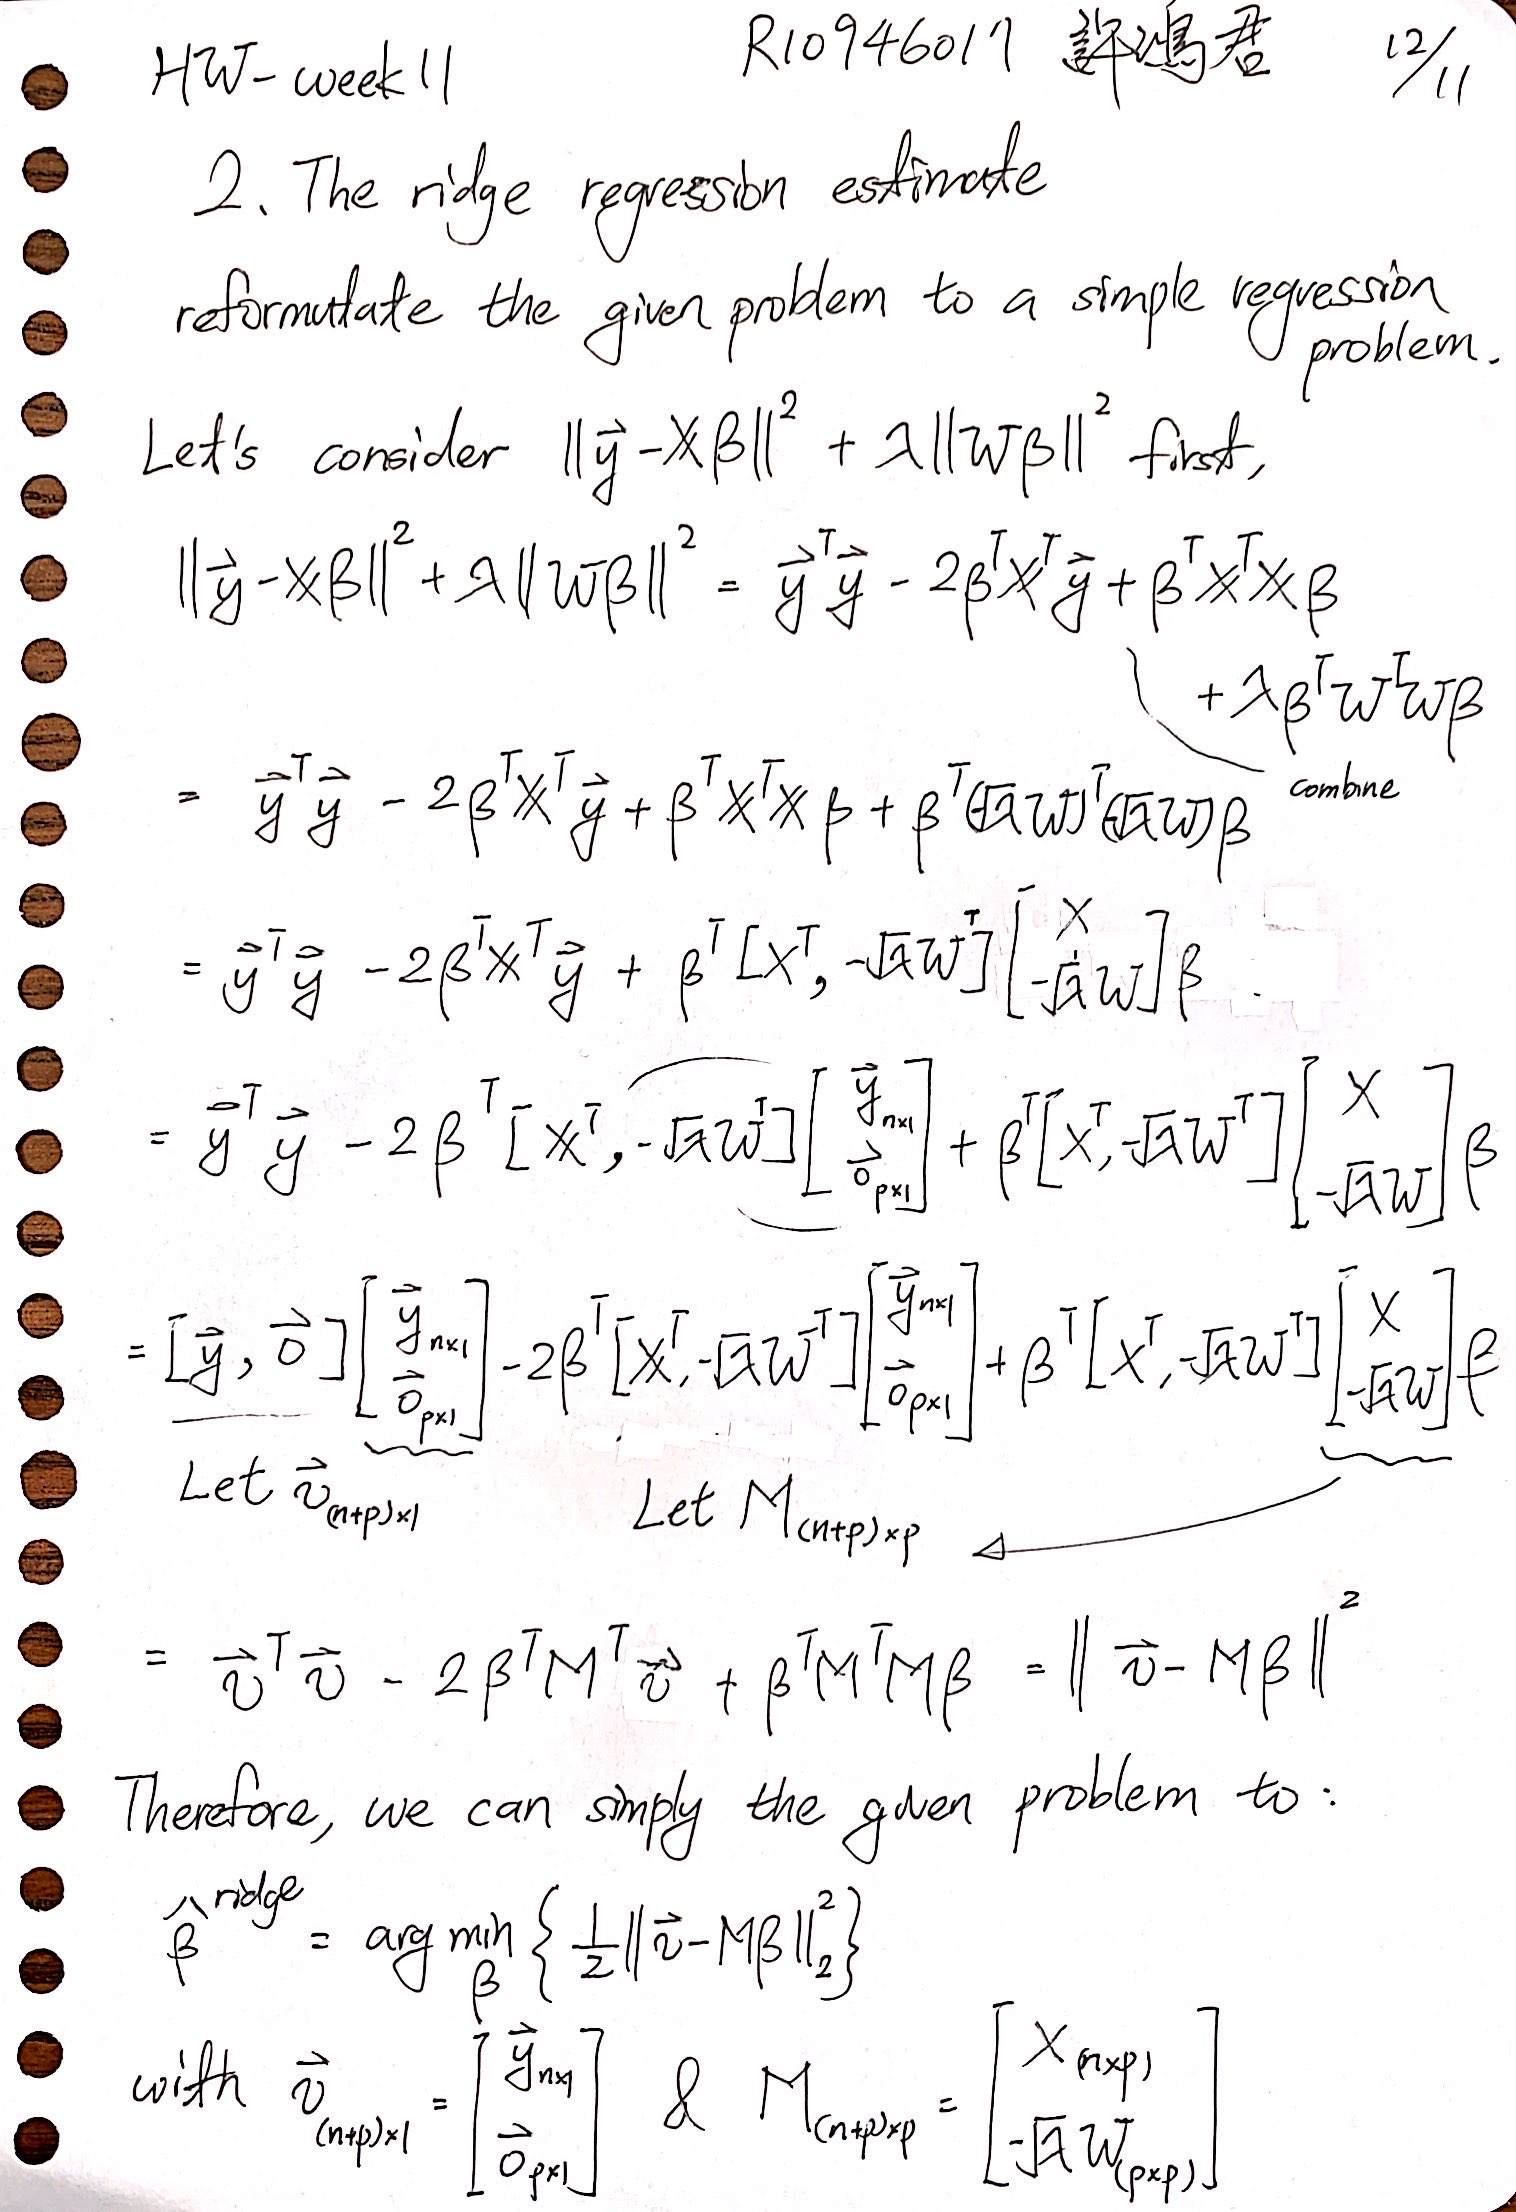 HW-week11 R10946017 許鴻君 12/11
2. The ridge regression estimate
reformutlate the given problem to a simple regression
problem.
Let's consider ‖y⃗ - Xβ‖² + λ‖Wβ‖² first,
‖y⃗ - Xβ‖² + λ‖Wβ‖² = y⃗ᵀy⃗ - 2βᵀXᵀy⃗ + βᵀXᵀXβ
+ λβᵀWᵀWβ
combine
= y⃗ᵀy⃗ - 2βᵀXᵀy⃗ + βᵀXᵀXβ + βᵀ(-√λW)ᵀ(-√λW)β
= y⃗ᵀy⃗ - 2βᵀXᵀy⃗ + βᵀ[Xᵀ, -√λWᵀ][X; -√λW]β
= y⃗ᵀy⃗ - 2βᵀ[Xᵀ, -√λWᵀ][y⃗ₙₓ₁; 0⃗ₚₓ₁] + βᵀ[Xᵀ, -√λWᵀ][X; -√λW]β
= [y⃗, 0⃗][y⃗ₙₓ₁; 0⃗ₚₓ₁] - 2βᵀ[Xᵀ, -√λWᵀ][y⃗ₙₓ₁; 0⃗ₚₓ₁] + βᵀ[Xᵀ, -√λWᵀ][X; -√λW]β
Let v⃗₍ₙ₊ₚ₎ₓ₁ Let M₍ₙ₊ₚ₎ₓₚ
= v⃗ᵀv⃗ - 2βᵀMᵀv⃗ + βᵀMᵀMβ = ‖v⃗ - Mβ‖²
Therefore, we can simply the given problem to:
β̂ ridge = arg min β {1/2‖v⃗ - Mβ‖₂²}
with v⃗₍ₙ₊ₚ₎ₓ₁ = [y⃗ₙₓ₁; 0⃗ₚₓ₁] & M₍ₙ₊ₚ₎ₓₚ = [X₍ₙₓₚ₎; -√λW₍ₚₓₚ₎]